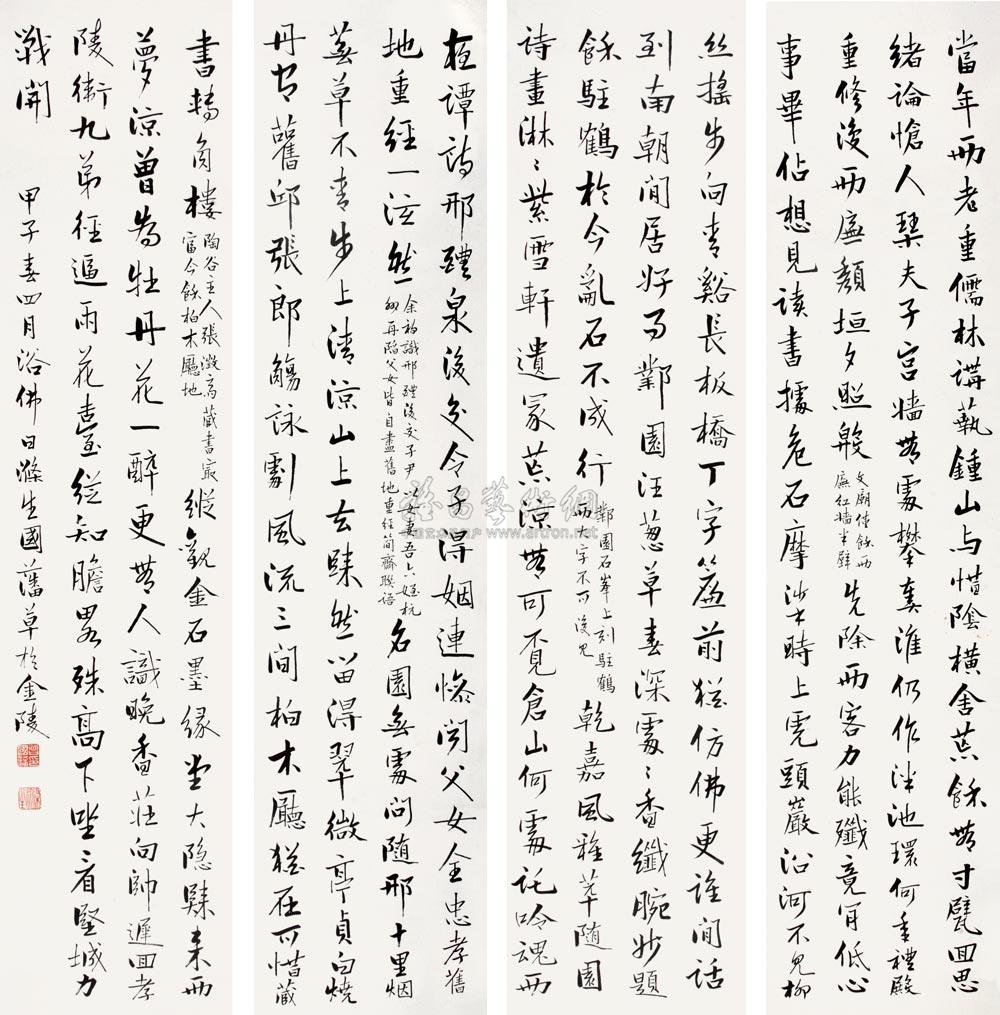 當年兩老重儒林講執鍾山与惜陰橫舍荒餘無寸甓回思
緒論愴人琴夫子宮墻無處攀秦淮仍作泮池環何年禮殿
重修後兩廡頹垣夕照殷文廟僅餘兩廡紅墻半壁先除西客力能殲竟肯低心
事畢佔想見讀書據危石摩挲時上虎頭巖沿河不見柳
絲搖步向青谿長板橋丁字簾前猶仿佛更誰閒話
到南朝閒居好了鄴園汪蔥草春深處〻香纖腕妙題
餘駐鶴於今亂石不成行鄴園石峯上刻駐鶴兩大字不可復見乾嘉風雅萃隨園
詩畫淋〻紫雪軒遺冢荒涼無可覓倉山何處託吟魂西
在譚詩邢醴泉後交令子得姻連慘聞父女全忠孝舊
地重經一泫然余初識邢醴後交子尹以女妻吾六姪杭州再陷父女皆自盡舊地重經簡齋聯語名園無處問隨邢十里烟
蕪草不青步上清涼山上去騋然留得翠微亭貞白燒
丹有舊邱張郎觴詠劇風流三間柏木廳猶在可惜藏
書轉角樓陶谷主人張澂齋藏書最富今餘柏木廳地縱觀金石墨緣堂大隱歸來兩
夢涼曾為牡丹花一醉更無人識晚香莊向帥遲回孝
陵衛九弟徑逼雨花臺從知膽畧殊高下坐看堅城力
戰開 甲子春四月浴佛日滌生國藩草於金陵